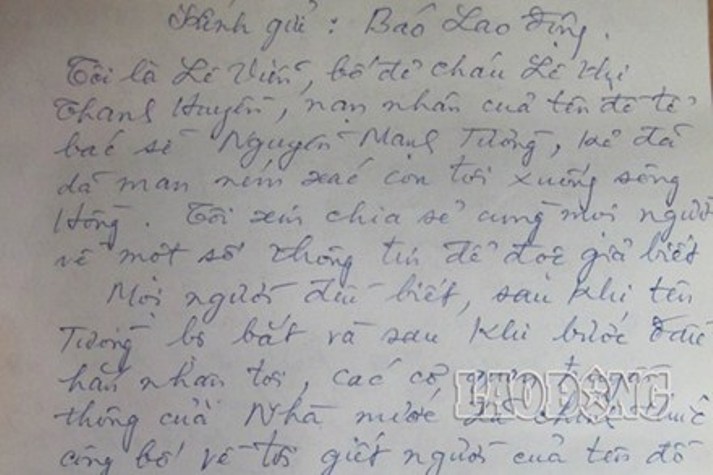 Kính gửi : Báo Lao Động.
Tôi là Lê Viễn, bố đẻ cháu Lê Thị
Thanh Huyền, nạn nhân của tên đồ tể
bác sĩ Nguyễn Mạnh Tường, kẻ đã
dã man ném xác con tôi xuống sông
Hồng. Tôi xin chia sẻ cùng mọi người
về một số thông tin để độc giả biết
Mọi người đều biết, sau khi tên
Tường bị bắt và sau khi buộc được
hắn nhận tội, các cơ quan truyền
thông của Nhà nước đã chính thức
công bố về tội giết người của tên đồ
LAO ĐỘNG